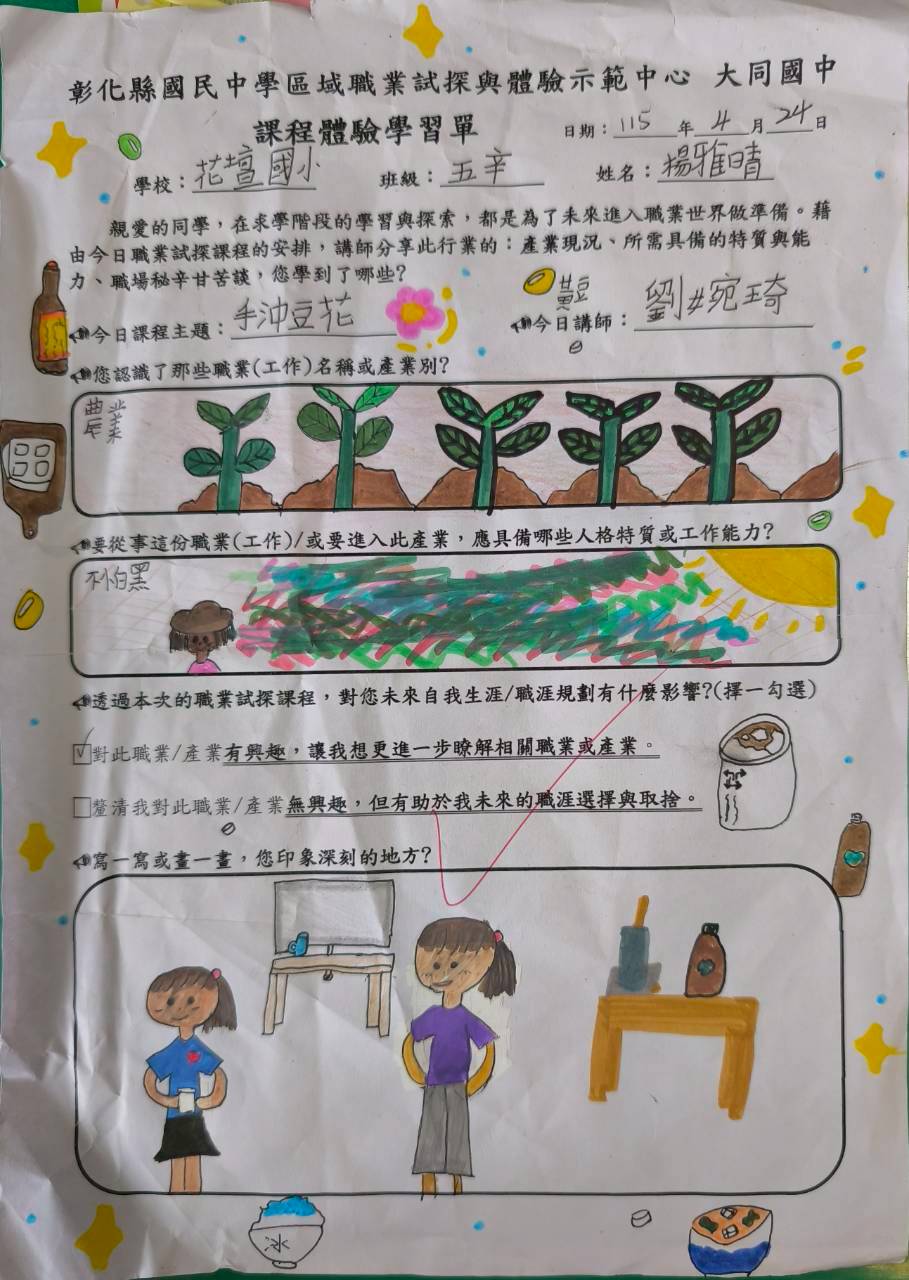 彰化縣國民中學區域職業試探與體驗示範中心 大同國中
課程體驗學習單
日期：115年4月24日
學校：花壇國小 班級：五辛 姓名：楊雅晴
親愛的同學，在求學階段的學習與探索，都是為了未來進入職業世界做準備。藉
由今日職業試探課程的安排，講師分享此行業的：產業現況、所需具備的特質與能
力、職場秘辛甘苦談，您學到了哪些?
黃豆
今日課程主題：手沖豆花 今日講師：劉宛琦
您認識了那些職業(工作)名稱或產業別?
農業
要從事這份職業(工作)/或要進入此產業，應具備哪些人格特質或工作能力?
不怕黑
透過本次的職業試探課程，對您未來自我生涯/職涯規劃有什麼影響?(擇一勾選)
☑對此職業/產業有興趣，讓我想更進一步瞭解相關職業或產業。
□釐清我對此職業/產業無興趣，但有助於我未來的職涯選擇與取捨。
寫一寫或畫一畫，您印象深刻的地方?
冰